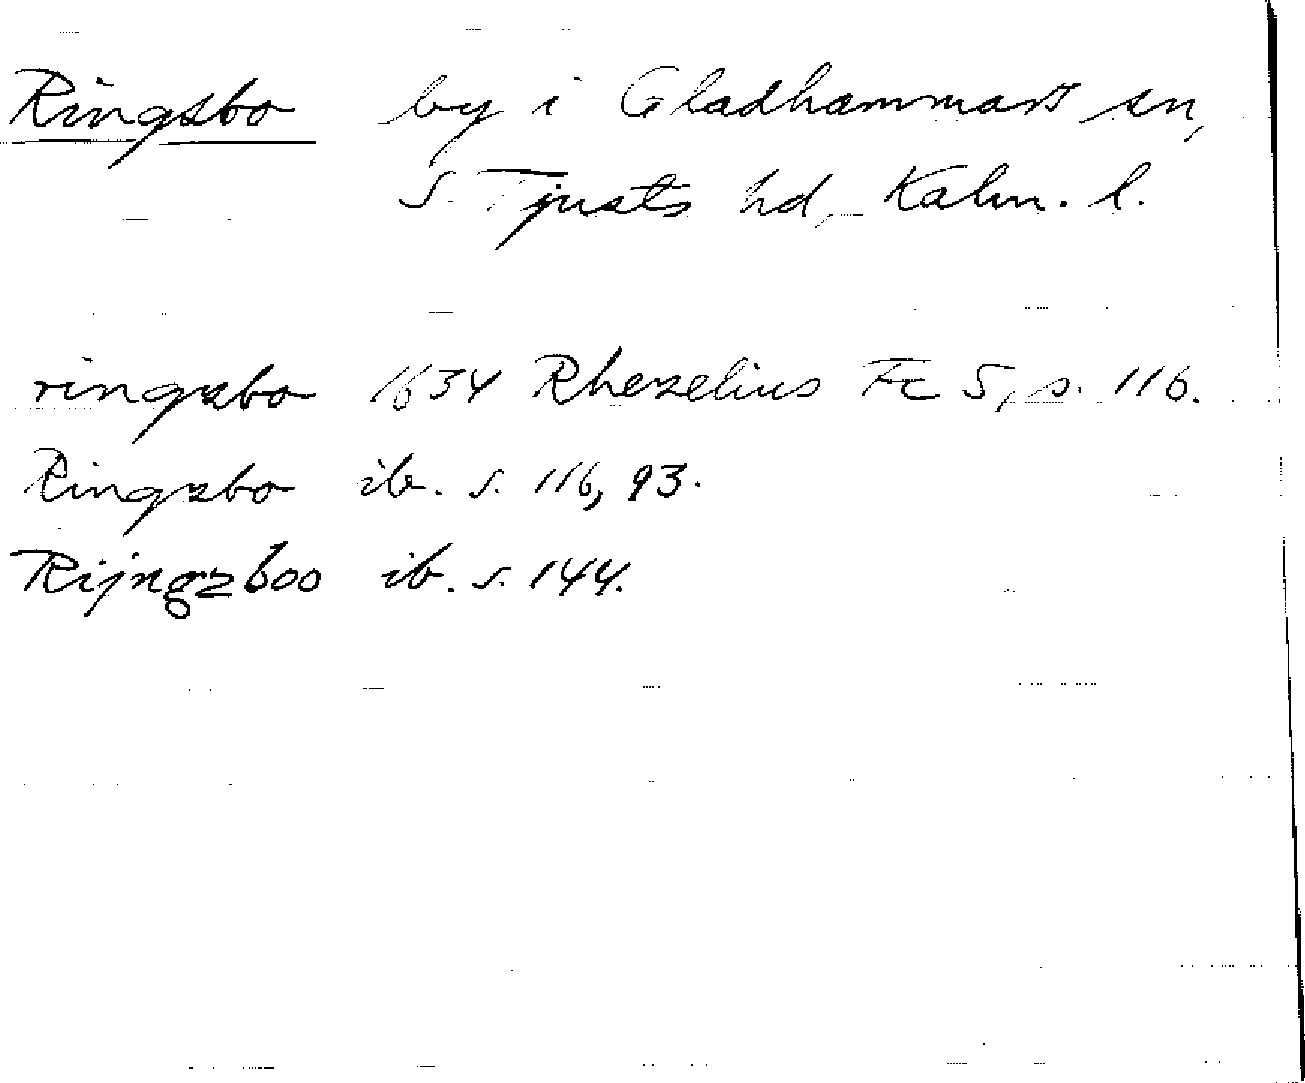 Ringsbo by i Gladhammars sn,
S. Tjusts hd, Kalm. l.
ringzbo 1634 Rhezelius Fc 5, s. 116.
Ringzbo ib. s. 116, 93.
Rijngzboo ib. s. 144.